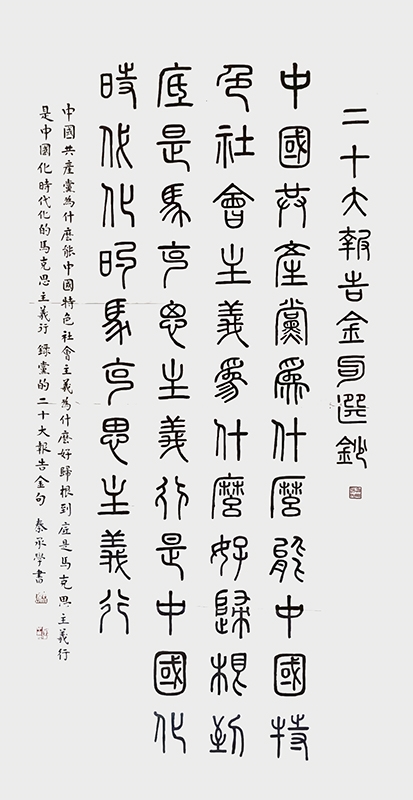 二十大報告金句選鈔
中國共產黨爲什麽能中國特
色社會主義爲什麽好歸根到
底是馬克思主義行是中國化
時代化的馬克思主義行
中國共產黨為什麽能中國特色社會主義為什麽好歸根到底是馬克思主義行
是中國化時代化的馬克思主義行 錄黨的二十大報告金句 秦承學書